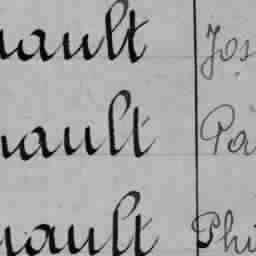 nault Jos
nault Pa
nault Phi